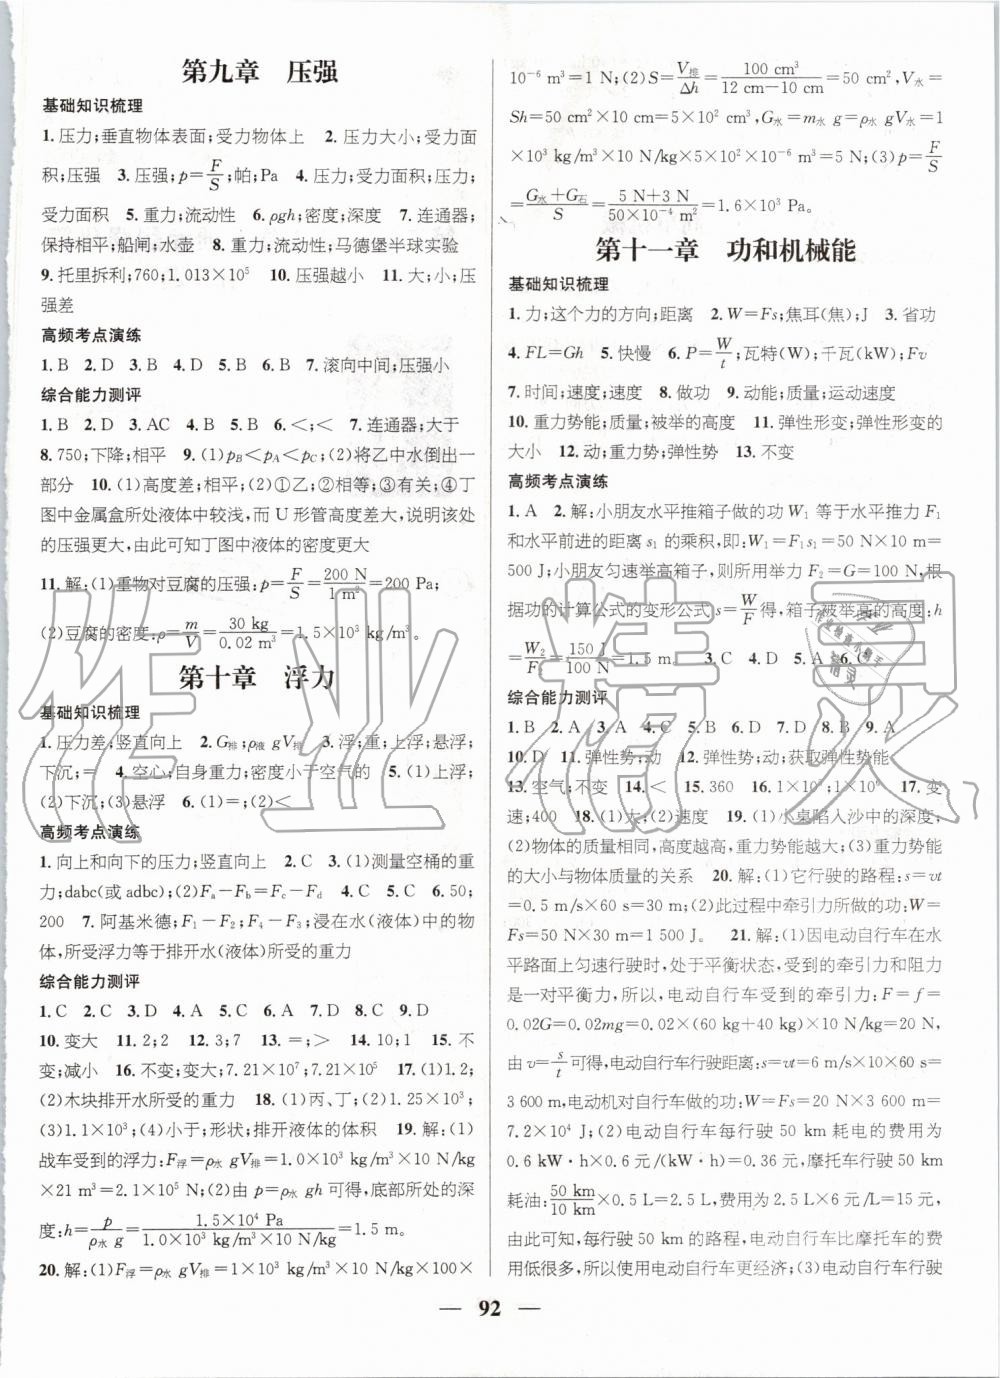 第九章　压强
基础知识梳理
1.压力;垂直物体表面;受力物体上　2.压力大小;受力面
积;压强　3.压强;p=F/S;帕;Pa　4.压力;受力面积;压力;
受力面积　5.重力;流动性　6.ρgh;密度;深度　7.连通器;
保持相平;船闸;水壶　8.重力;流动性;马德堡半球实验
9.托里拆利;760;1.013×10⁵　10.压强越小　11.大;小;压
强差
高频考点演练
1.B　2.D　3.B　4.D　5.B　6.D　7.滚向中间;压强小
综合能力测评
1.B　2.D　3.AC　4.B　5.B　6.<;<　7.连通器;大于
8.750;下降;相平　9.(1)pB<pA<pC;(2)将乙中水倒出一
部分　10.(1)高度差;相平;(2)①乙;②相等;③有关;④丁
图中金属盒所处液体中较浅,而 U 形管高度差大,说明该处
的压强更大,由此可知丁图中液体的密度更大
11.解:(1)重物对豆腐的压强:p=F/S=200 N/1 m²=200 Pa;
(2)豆腐的密度:ρ=m/V=30 kg/0.02 m³=1.5×10³ kg/m³。
第十章　浮力
基础知识梳理
1.压力差;竖直向上　2.G排;ρ液 gV排　3.浮;重;上浮;悬浮;
下沉;=　4.空心;自身重力;密度小于空气的　5.(1)上浮;
(2)下沉;(3)悬浮　6.(1)<;(2)<
高频考点演练
1.向上和向下的压力;竖直向上　2.C　3.(1)测量空桶的重
力;dabc(或 adbc);(2)Fa−Fb=Fc−Fd　4.C　5.C　6.50;
200　7.阿基米德;F₁−F₂;F₄−F₃;浸在水(液体)中的物
体,所受浮力等于排开水(液体)所受的重力
综合能力测评
1.C　2.C　3.D　4.A　5.C　6.A　7.C　8.C　9.D
10.变大　11.2;2　12.3;7　13.=;>　14.10;1　15.不
变;减小　16.不变;变大;7.21×10⁷;7.21×10⁵　17.(1)1.2;
(2)木块排开水所受的重力　18.(1)丙、丁;(2)1.25×10³;
(3)1.1×10³;(4)小于;形状;排开液体的体积　19.解:(1)
战车受到的浮力:F浮=ρ水 gV排=1.0×10³ kg/m³×10 N/kg
×21 m³=2.1×10⁵ N;(2)由 p=ρ水 gh 可得,底部所处的深
度:h=p/ρ水 g=1.5×10⁴ Pa/1.0×10³ kg/m³×10 N/kg=1.5 m。
20.解:(1)F浮=ρ水 gV排=1×10³ kg/m³×10 N/kg×100×
10⁻⁶ m³=1 N;(2)S=V排/Δh=100 cm³/12 cm−10 cm=50 cm²,V水=
Sh=50 cm²×10 cm=5×10² cm³,G水=m水 g=ρ水 gV水=1
×10³ kg/m³×10 N/kg×5×10² cm³=5 N;(3)p=F/S
=G水+G石/S=5 N+3 N/50×10⁻⁴ m²=1.6×10³ Pa。
第十一章　功和机械能
基础知识梳理
1.力;这个力的方向;距离　2.W=Fs;焦耳(焦);J　3.省功
4.FL=Gh　5.快慢　6.P=W/t;瓦特(W);千瓦(kW);Fv
7.时间;速度;速度　8.做功　9.动能;质量;运动速度
10.重力势能;质量;被举的高度　11.弹性形变;弹性形变的
大小　12.动;重力势;弹性势　13.不变
高频考点演练
1.A　2.解:小朋友水平推箱子做的功 W₁ 等于水平推力 F₁
和水平前进的距离 s₁ 的乘积,即:W₁=F₁s₁=50 N×10 m=
500 J;小朋友匀速举高箱子,则所用举力 F₂=G=100 N,根
据功的计算公式的变形公式 s=W/F得,箱子被举高的高度:h
=W₂/F₂=150 J/100 N=1.5 m。　3.C　4.C　5.A　6.
综合能力测评
1.B　2.A　3.A　4.C　5.B　6.D　7.D　8.B　9.A
10.D　11.弹性势;动　12.弹性势;动;获取弹性势能
13.空气;不变　14.<　15.360　16.　17.变
速;400　18.(1)大;(2)大　19.(1)小桌陷入沙中的深度;
(2)物体的质量相同,高度越高,重力势能越大;(3)重力势能
的大小与物体质量的关系　20.解:(1)它行驶的路程:s=vt
=0.5 m/s×60 s=30 m;(2)此过程中牵引力所做的功:W=
Fs=50 N×30 m=1 500 J。　21.解:(1)因电动自行车在水
平路面上匀速行驶时,处于平衡状态,受到的牵引力和阻力
是一对平衡力,所以,电动自行车受到的牵引力:F=f=
0.02G=0.02mg=0.02×(60 kg+40 kg)×10 N/kg=20 N,
由 v=s/t可得,电动自行车行驶距离:s=vt=6 m/s×10×60 s=
3 600 m,电动机对自行车做的功:W=Fs=20 N×3 600 m=
7.2×10⁴ J;(2)电动自行车每行驶 50 km 耗电的费用为
0.6 kW·h×0.6 元/(kW·h)=0.36 元,摩托车行驶 50 km
耗油:50 km/10 km×0.5 L=2.5 L,费用为 2.5 L×6 元/L=15 元,
由此可知,每行驶 50 km 的路程,电动自行车比摩托车的费
用低很多,所以使用电动自行车更经济;(3)电动自行车行驶
— 92 —
作业精灵